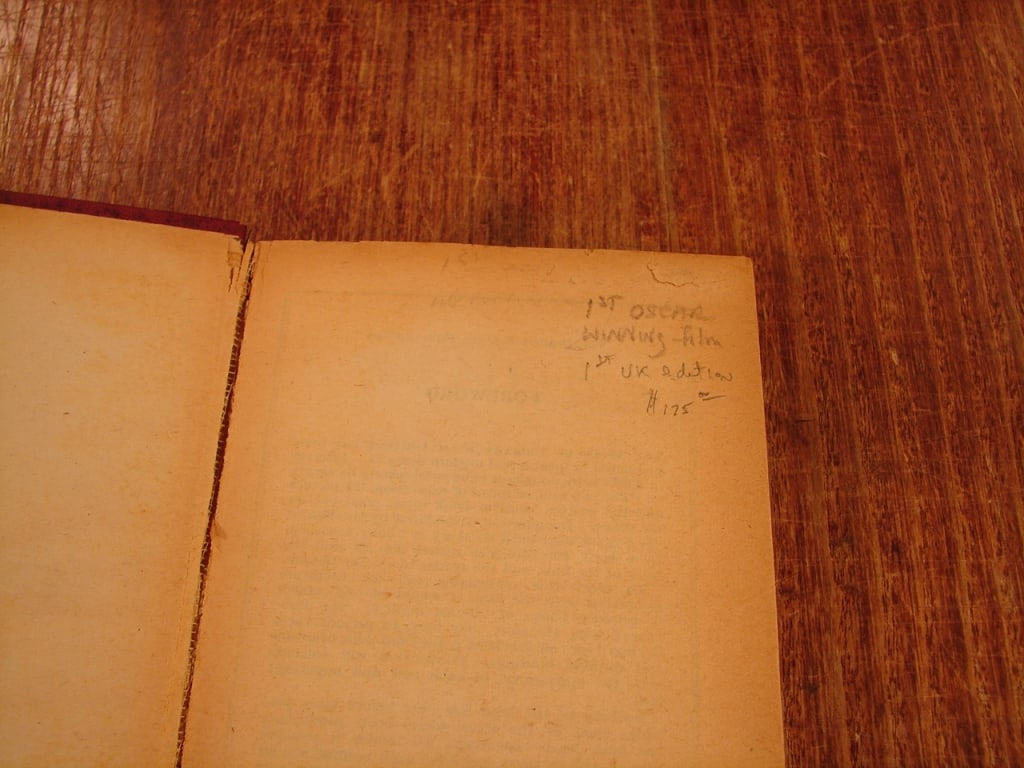 1ST OSCAR
WINNING film
1ST UK edition
$175